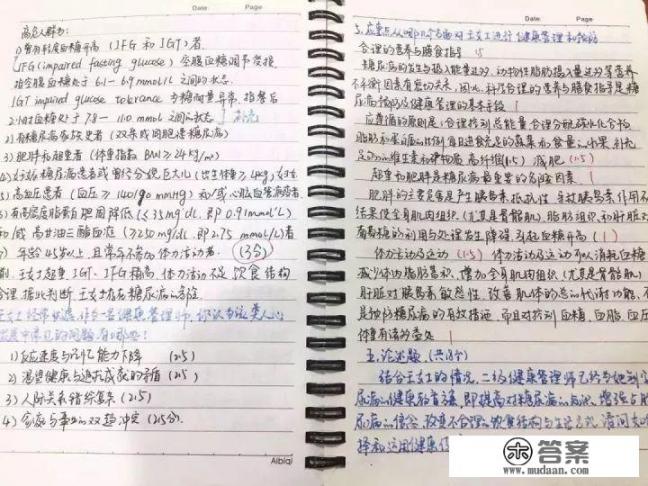 Date Page
高危人群为:
1)曾有轻度血糖升高(IFG和IGT)者
IFG(impaired fasting glucose)空腹血糖调节受损
指空腹血糖处于6.1-6.9mmol/L之间的状态
IGT impaired glucose tolerance 为糖耐量异常,指餐后
2小时血糖处于7.8-11.0 mmol之间的状态
2)有糖尿病家族史者(双亲或同胞患糖尿病)
3)肥胖和超重者(体重指数BMI≥24kg/m²)
4)妊娠糖尿病患者或曾经分娩巨大儿(出生体重≥4kg)
5)高血压患者(血压≥140/90mmHg)和/或心脑血管病变者
6)有高密度脂蛋白胆固醇降低(≤35mg/dl,即0.91mmol/L)
和/或高甘油三酯血症(≥250mg/dl,即2.75mmol/L)者
7)年龄45岁以上,且常年不参加体力活动者(3分)
王女士超重IGT、IFG稍高,体力活动不足,饮食结构
合理,据此判断,王女士有糖尿病的高危
1)反应速度与记忆能力下降(2.5)
2)渴望健康与追求成就的矛盾(2.5)
3)人际关系错综复杂(2.5)
4)家庭与事业的双趋冲突(2.5分)
Aibiqi
Date Page
3.应重点从哪几个方面对王女士进行健康管理和指导
合理的营养与膳食指导 1.5
糖尿病的发生与摄入能量过多、动物性脂肪摄入量过多等营养
不平衡因素有密切关系,因此,科学合理的营养与膳食指导是糖
尿病预防及健康管理的基本手段 1
应遵循的原则是:合理控制总能量,合理分配碳水化合物
足的维生素和矿物质,高纤维(1.5) 减肥(1.5)
超重和肥胖是糖尿病最重要的危险因素 1
肥胖的主要危害是产生胰岛素抵抗性,导致胰岛素作用不
结果使全身肌肉组织(尤其是骨骼肌)、脂肪组织和肝脏对
有葡萄糖的利用与处理发生障碍,引起血糖升高(1)
体力活动与运动(1.5) 体力活动及运动可以消耗血糖
减少体内脂肪蓄积,增加全身肌肉组织(尤其是骨骼肌)
肝脏对胰岛素敏感性,改善机体的总的代谢功能,不
是预防糖尿病的有效措施,而且对控制血糖、血脂、血压
体重有诸多益处 1
五、论述题(共18分)
结合王女士的情况,二级健康管理师已经为她制定
尿病健康教育方案,即提高对糖尿病的认识,增强
尿病的信念,改变不合理的饮食结构与生活方式,请问
择和运用健康
答案
www.mudaan.com